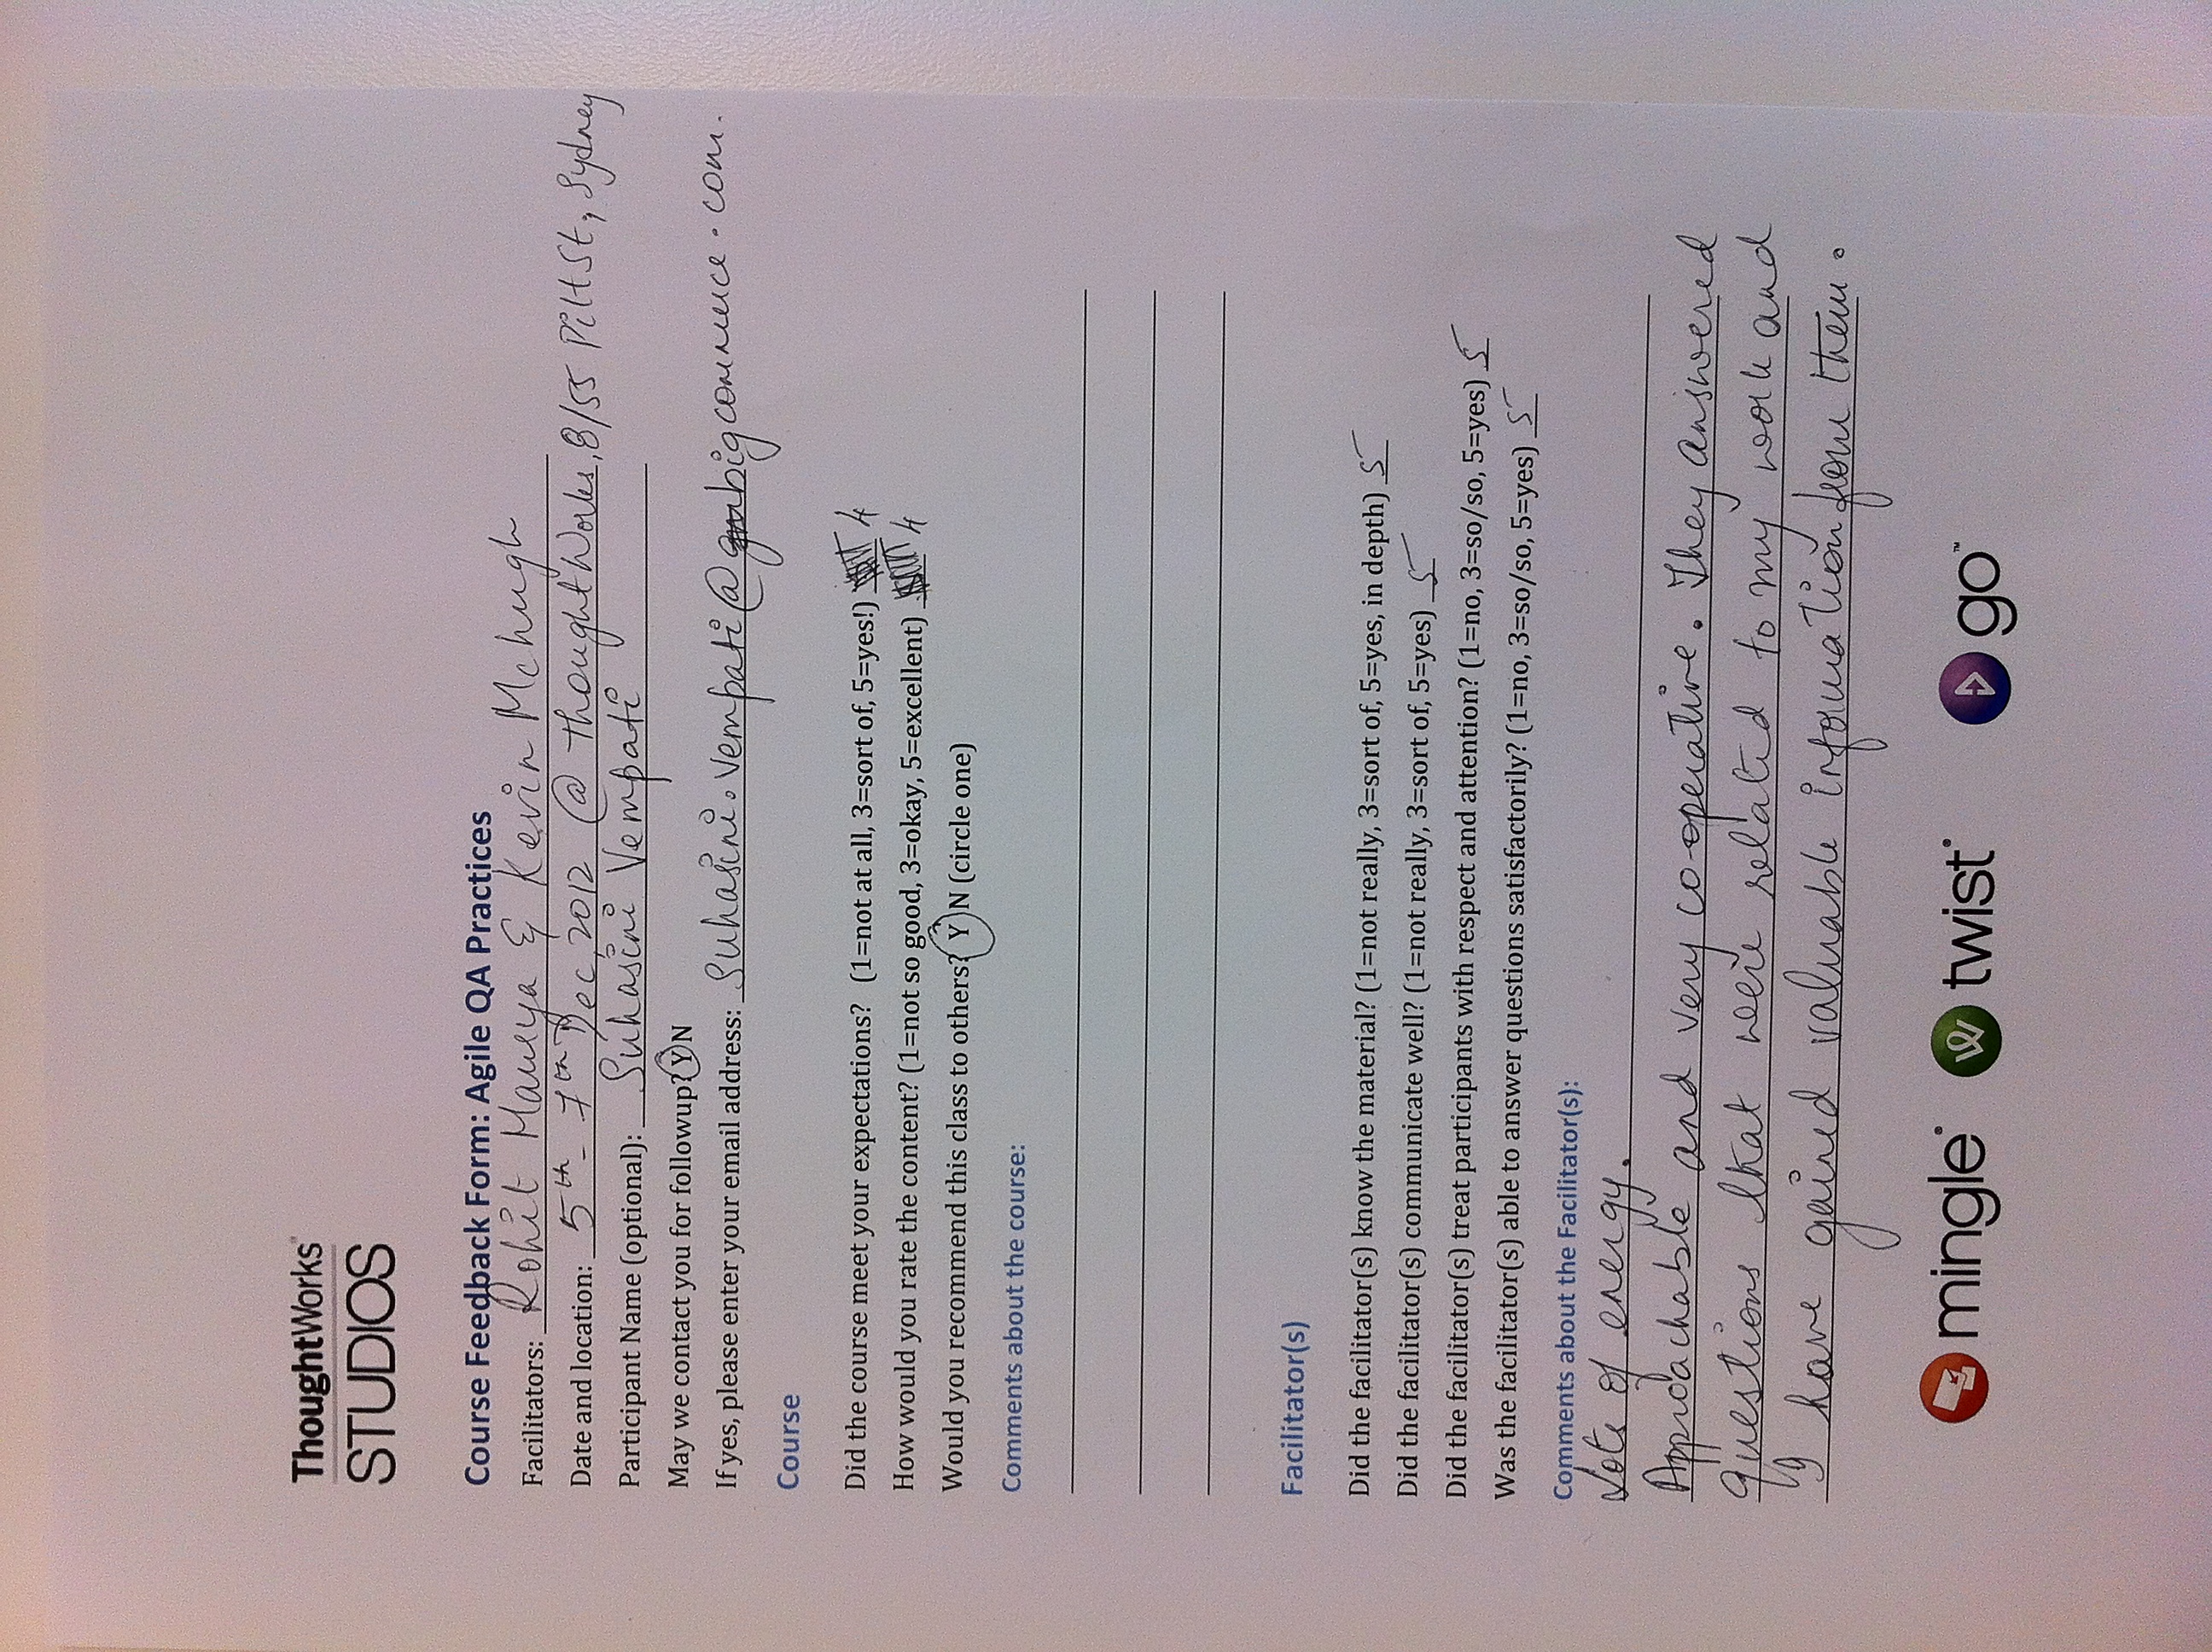 ThoughtWorks
STUDIOS
Course Feedback Form: Agile QA Practices
Facilitators: Rohit Maurya & Kevin Mchugh
Date and location: 5th - 7th Dec, 2012 @ ThoughtWorks, 8/55 Pitt St, Sydney
Participant Name (optional): Suhasini Vempati
May we contact you for followup? Y N
If yes, please enter your email address: Suhasini.Vempati@bigcommerce.com.
Course
Did the course meet your expectations? (1=not at all, 3=sort of, 5=yes!) 4
How would you rate the content? (1=not so good, 3=okay, 5=excellent) 4
Would you recommend this class to others? Y N (circle one)
Comments about the course:
Facilitator(s)
Did the facilitator(s) know the material? (1=not really, 3=sort of, 5=yes, in depth) 5
Did the facilitator(s) communicate well? (1=not really, 3=sort of, 5=yes) 5
Did the facilitator(s) treat participants with respect and attention? (1=no, 3=so/so, 5=yes) 5
Was the facilitator(s) able to answer questions satisfactorily? (1=no, 3=so/so, 5=yes) 5
Comments about the Facilitator(s):
Lots of energy.
Approachable and very co-operative. They answered
questions that were related to my work and
I have gained valuable information from them.
mingle twist go™